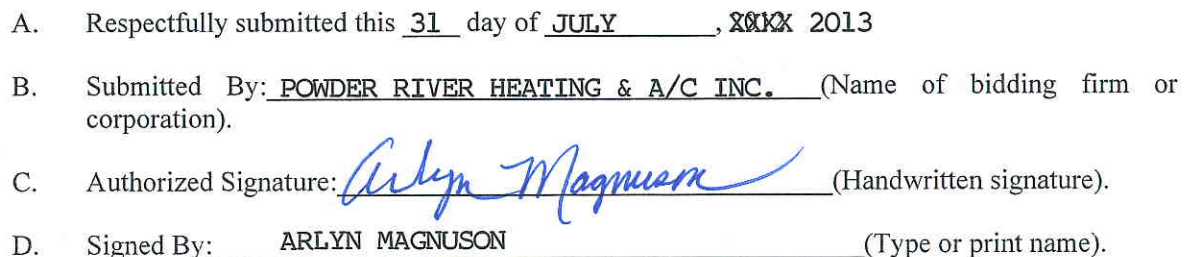 A. Respectfully submitted this 31 day of JULY , 2013
B. Submitted By: POWDER RIVER HEATING & A/C INC. (Name of bidding firm or
corporation).
C. Authorized Signature: Arlyn Magnuson (Handwritten signature).
D. Signed By: ARLYN MAGNUSON (Type or print name).